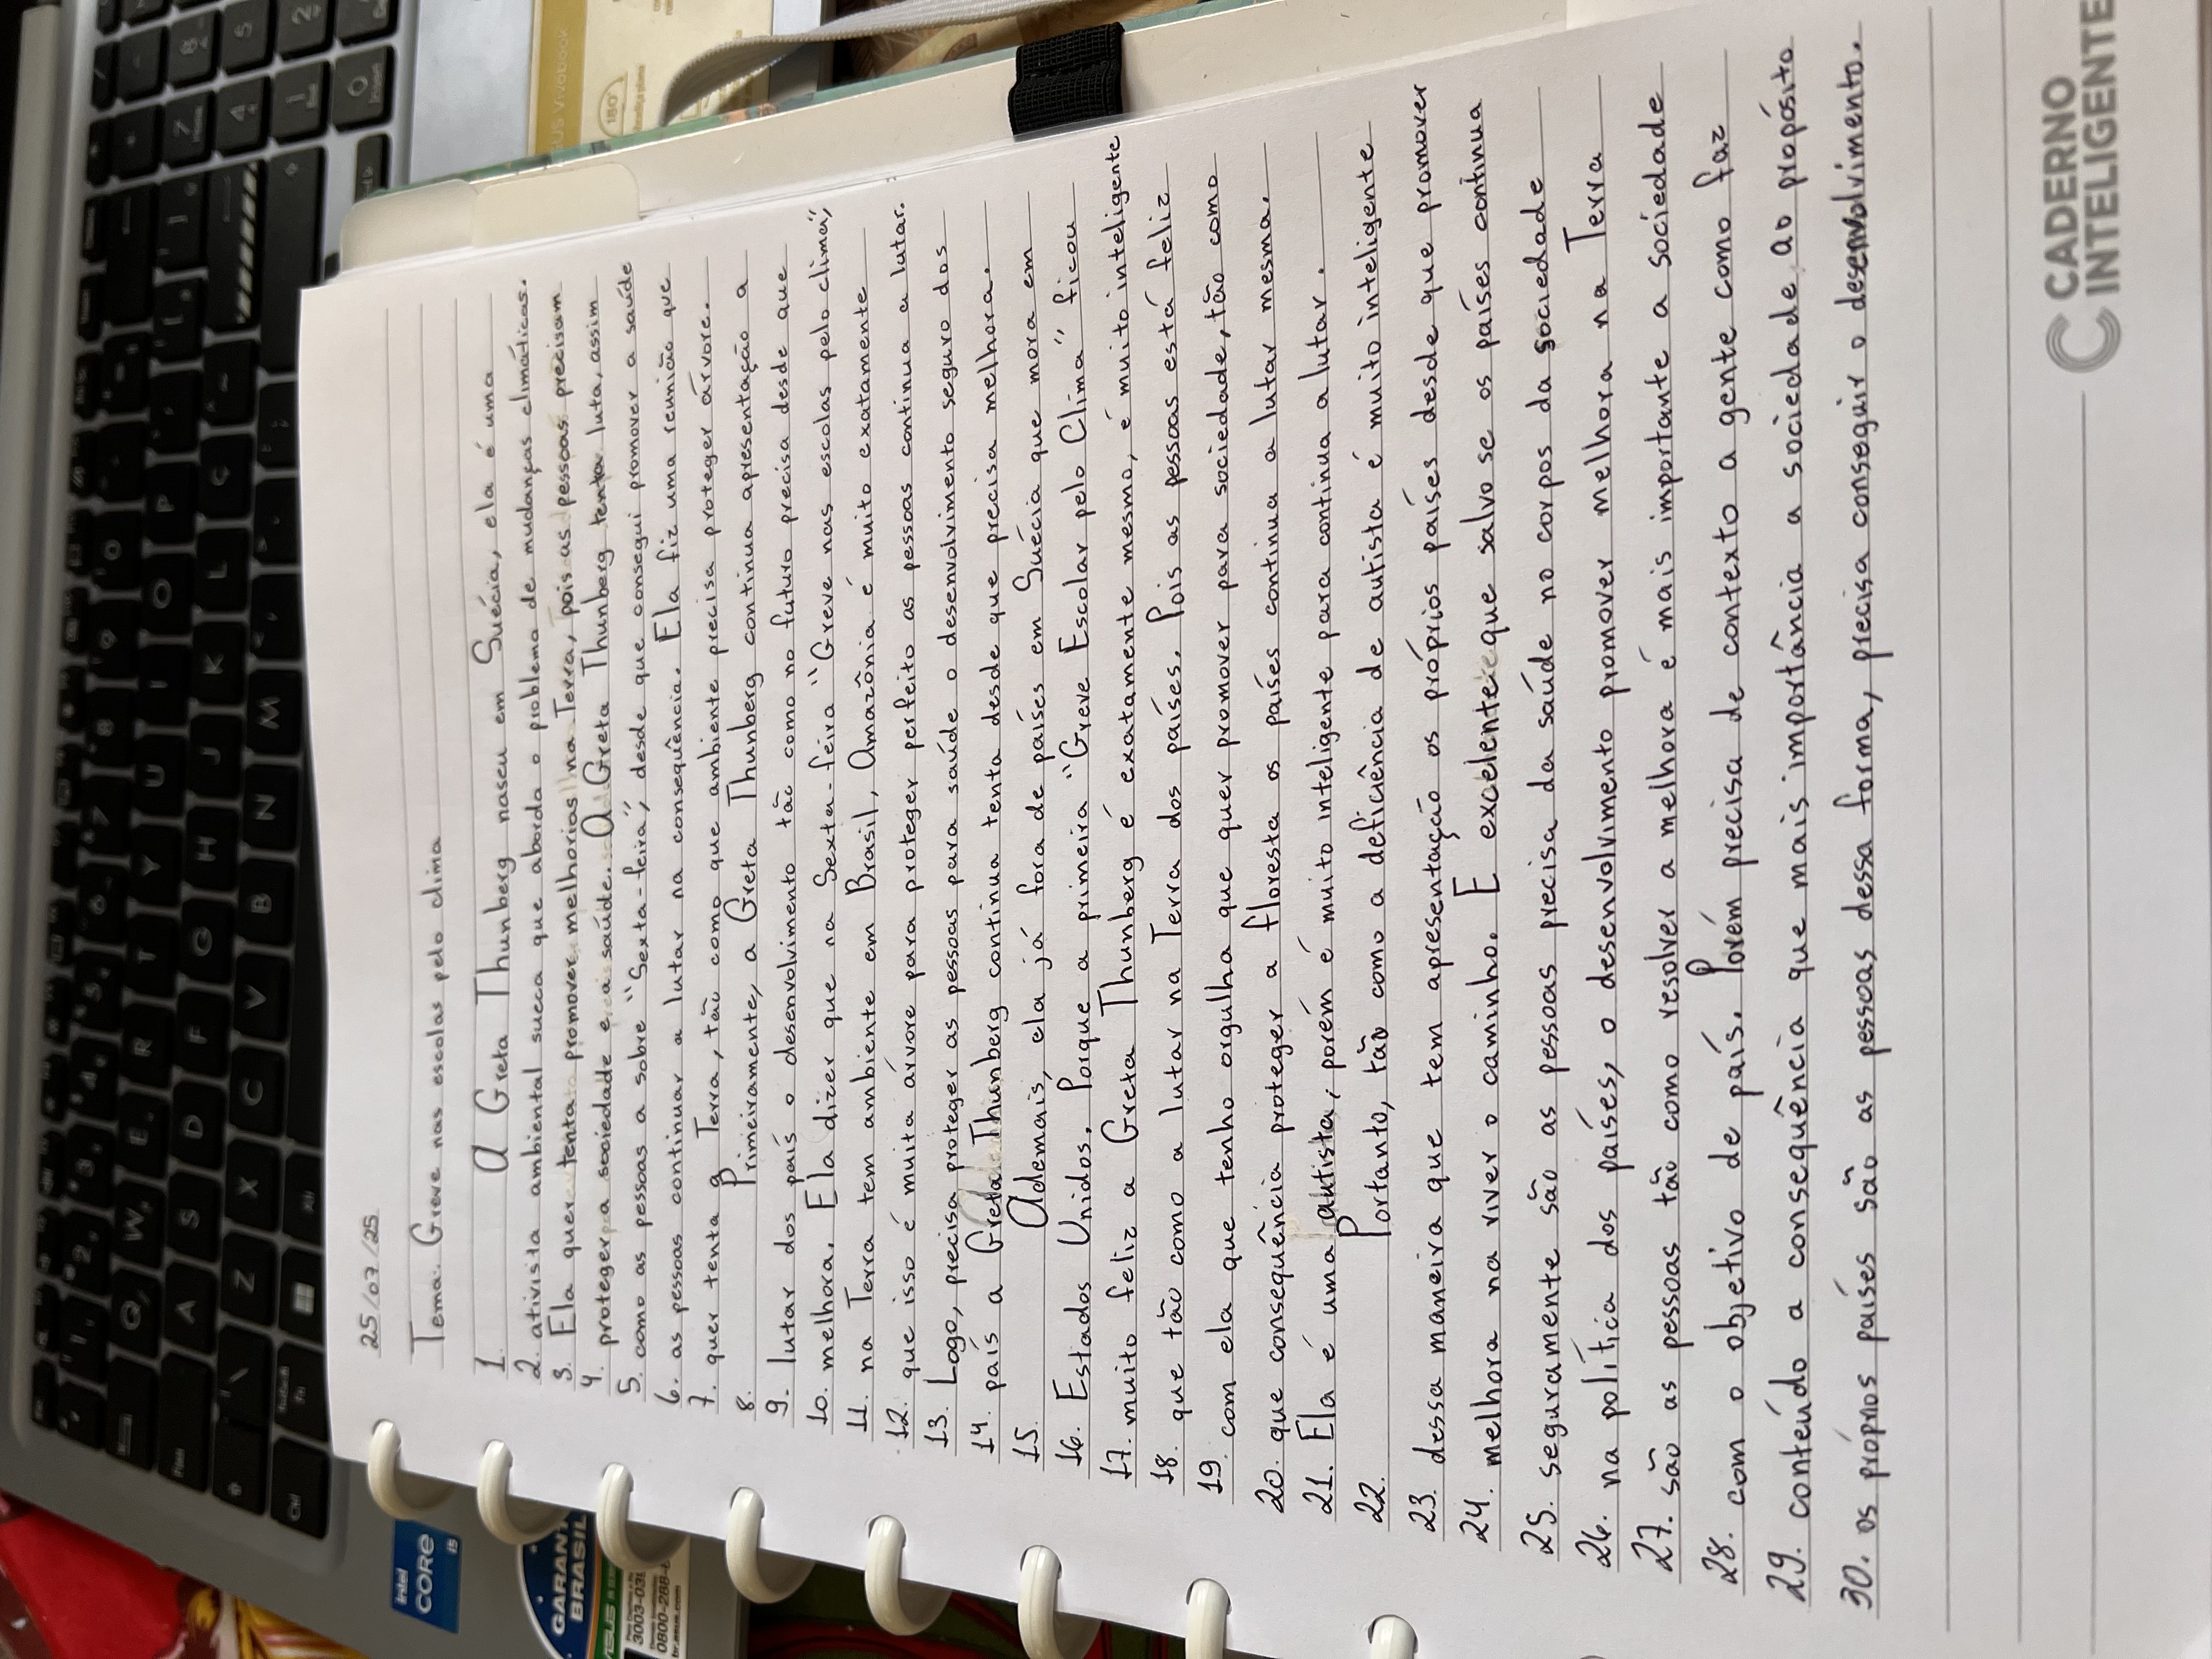 25/07/25
Tema: Greve nas escolas pelo clima
1. A Greta Thunberg naseu em Suécia, ela é uma
2. ativista ambiental sueca que aborda o problema de mudanças climáticas.
3. Ela quer tenta promover melhorias na Terra, pois as pessoas precisam
4. proteger a sociedade e a saúde. A Greta Thunberg tenta luta, assim
5. como as pessoas a sobre "Sexta-feira", desde que consegui promover a saúde
6. as pessoas continuar a lutar na consequência. Ela fiz uma reunião que
7. quer tenta a Terra, tão como que ambiente precisa proteger árvore.
8. Primeiramente, a Greta Thunberg continua apresentação a
9. lutar dos país o desenvolvimento tão como no futuro precisa desde que
10. melhora. Ela dizer que na Sexta-feira "Greve nas escolas pelo clima",
11. na Terra tem ambiente em Brasil, Amazônia é muito exatamente
12. que isso é muita árvore para proteger perfeito as pessoas continua a lutar.
13. Logo, precisa proteger as pessoas para saúde o desenvolvimento seguro dos
14. país a Greta Thunberg continua tenta desde que precisa melhora.
15. Ademais, ela já fora de países em Suécia que mora em
16. Estados Unidos. Porque a primeira "Greve Escolar pelo Clima" ficou
17. muito feliz a Greta Thunberg é exatamente mesmo, é muito inteligente
18. que tão como a lutar na Terra dos países. Pois as pessoas está feliz
19. com ela que tenho orgulha que quer promover para sociedade, tão como
20. que consequência proteger a floresta os países continua a lutar mesma.
21. Ela é uma autista, porém é muito inteligente para continua a lutar.
22. Portanto, tão como a deficiência de autista é muito inteligente
23. dessa maneira que tem apresentação os próprios países desde que promover
24. melhora na viver o caminho. E excelente que salvo se os países continua
25. seguramente são as pessoas precisa da saúde no corpos da sociedade
26. na política dos países, o desenvolvimento promover melhora na Terra
27. são as pessoas tão como resolver a melhora é mais importante a sociedade
28. com o objetivo de país. Porém precisa de contexto a gente como faz
29. conteúdo a consequência que mais importância a sociedade, ao propósito
30. os próprios países são as pessoas dessa forma, precisa conseguir o desenvolvimento.
CADERNO
INTELIGENTE
intel
CORE
i5
GARANT
BRASIL